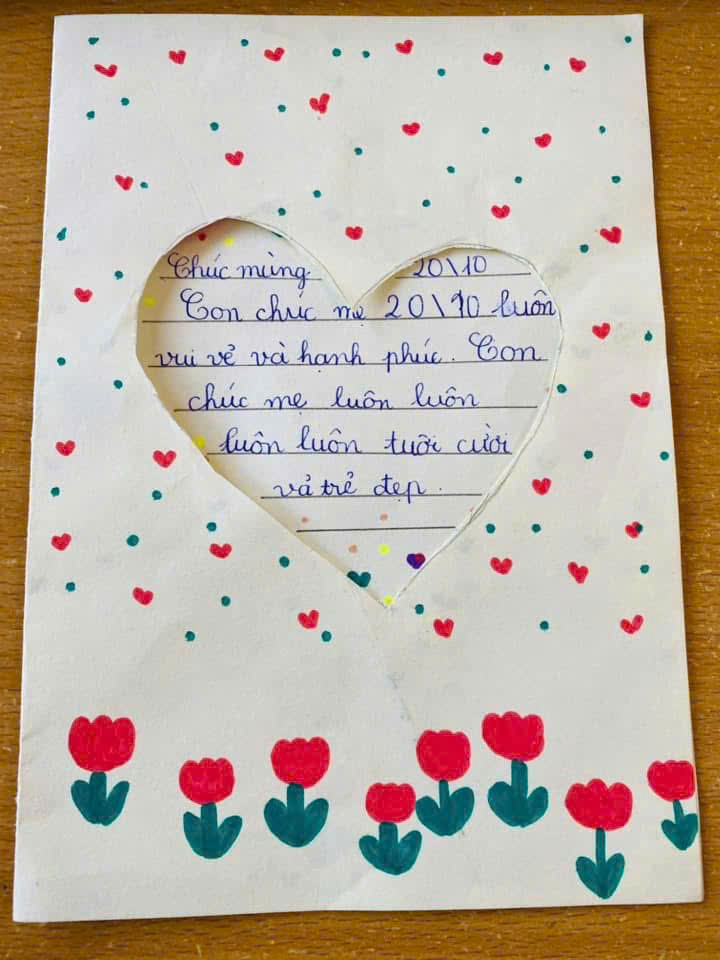 Chúc mừng 20\10
Con chúc mẹ 20\10 luôn
vui vẻ và hạnh phúc. Con
chúc mẹ luôn luôn
luôn luôn tươi cười
và trẻ đẹp.